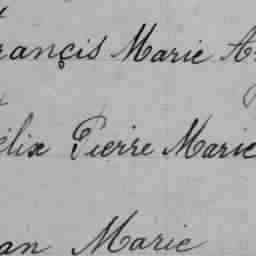 rançis Marie A
élix Pierre Marie
an Marie